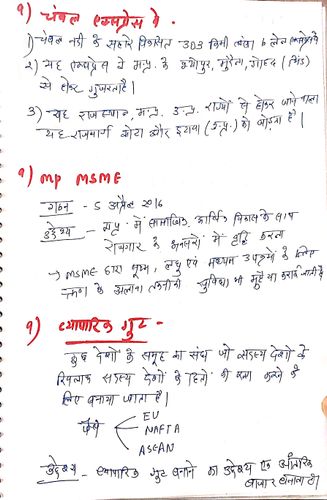 १) चंबल एक्सप्रेस वे -
1) चंबल नदी के सहारे विकसित 303 किमी लंबा 6 लेन एक्सप्रेसवे
2) यह एक्सप्रेस वे म.प्र. के श्योपुर, मुरैना, गोहद (भिंड)
से होकर गुजरता है।
3) यह राजस्थान, म.प्र. उ.प्र. राज्यों से होकर जाने वाला
यह राजमार्ग कोटा और इटावा (उ.प्र.) को जोड़ता है।
१) MP MSME
गठन - 5 अप्रैल 2016
उद्देश्य - म.प्र. में सामाजिक, आर्थिक विकास के साथ
रोजगार के अवसरों में वृद्धि करना
→ MSME द्वारा सूक्ष्म, लघु एवं मध्यम उद्यमों के लिए
ऋण के अलावा तकनीकी सुविधा भी मुहैया कराई जाती है
१) व्यापारिक गुट -
कुछ देशों के समूह का संघ जो सदस्य देशों के
खिलाफ सदस्य देशों के हितों की रक्षा करने के
लिए बनाया जाता है।
जैसे
EU
NAFTA
ASEAN
उद्देश्य - व्यापारिक गुट बनाने का उद्देश्य एक आंतरिक
बाजार बनाना है।